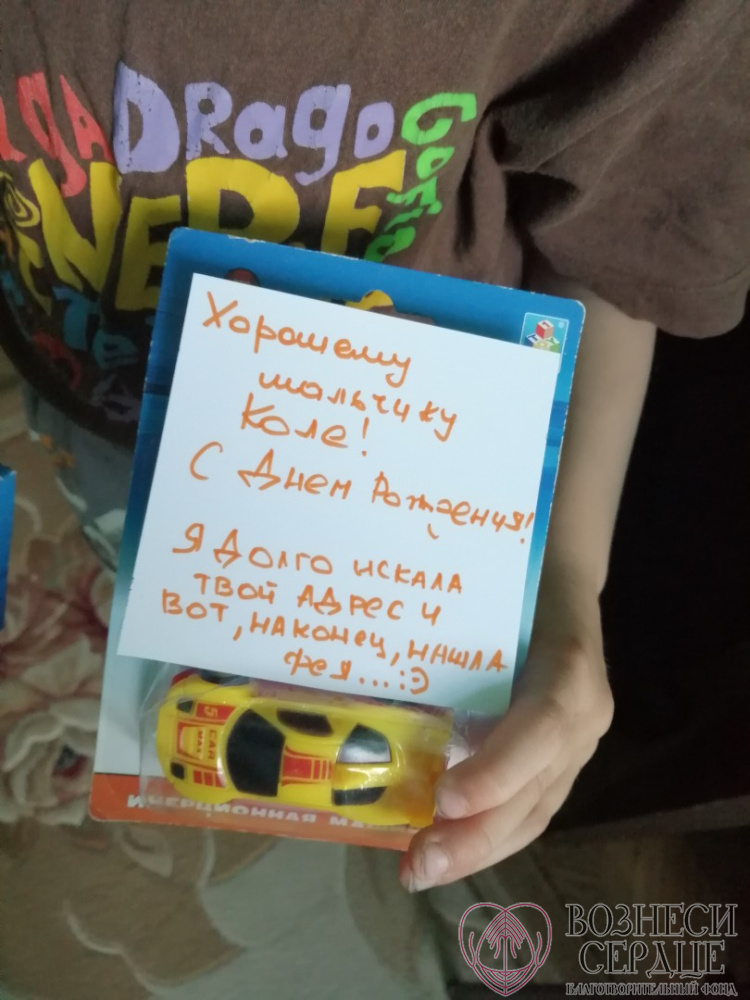 DRago
Gofia
Хорошему
мальчику
Коле!
С Днем Рождения!
Я долго искала
твой адрес и
вот, наконец, нашла
фея...:Э
5
CAR
ИНЕРЦИОННАЯ МА
ВОЗНЕСИ
СЕРДЦЕ
БЛАГОТВОРИТЕЛЬНЫЙ ФОНД